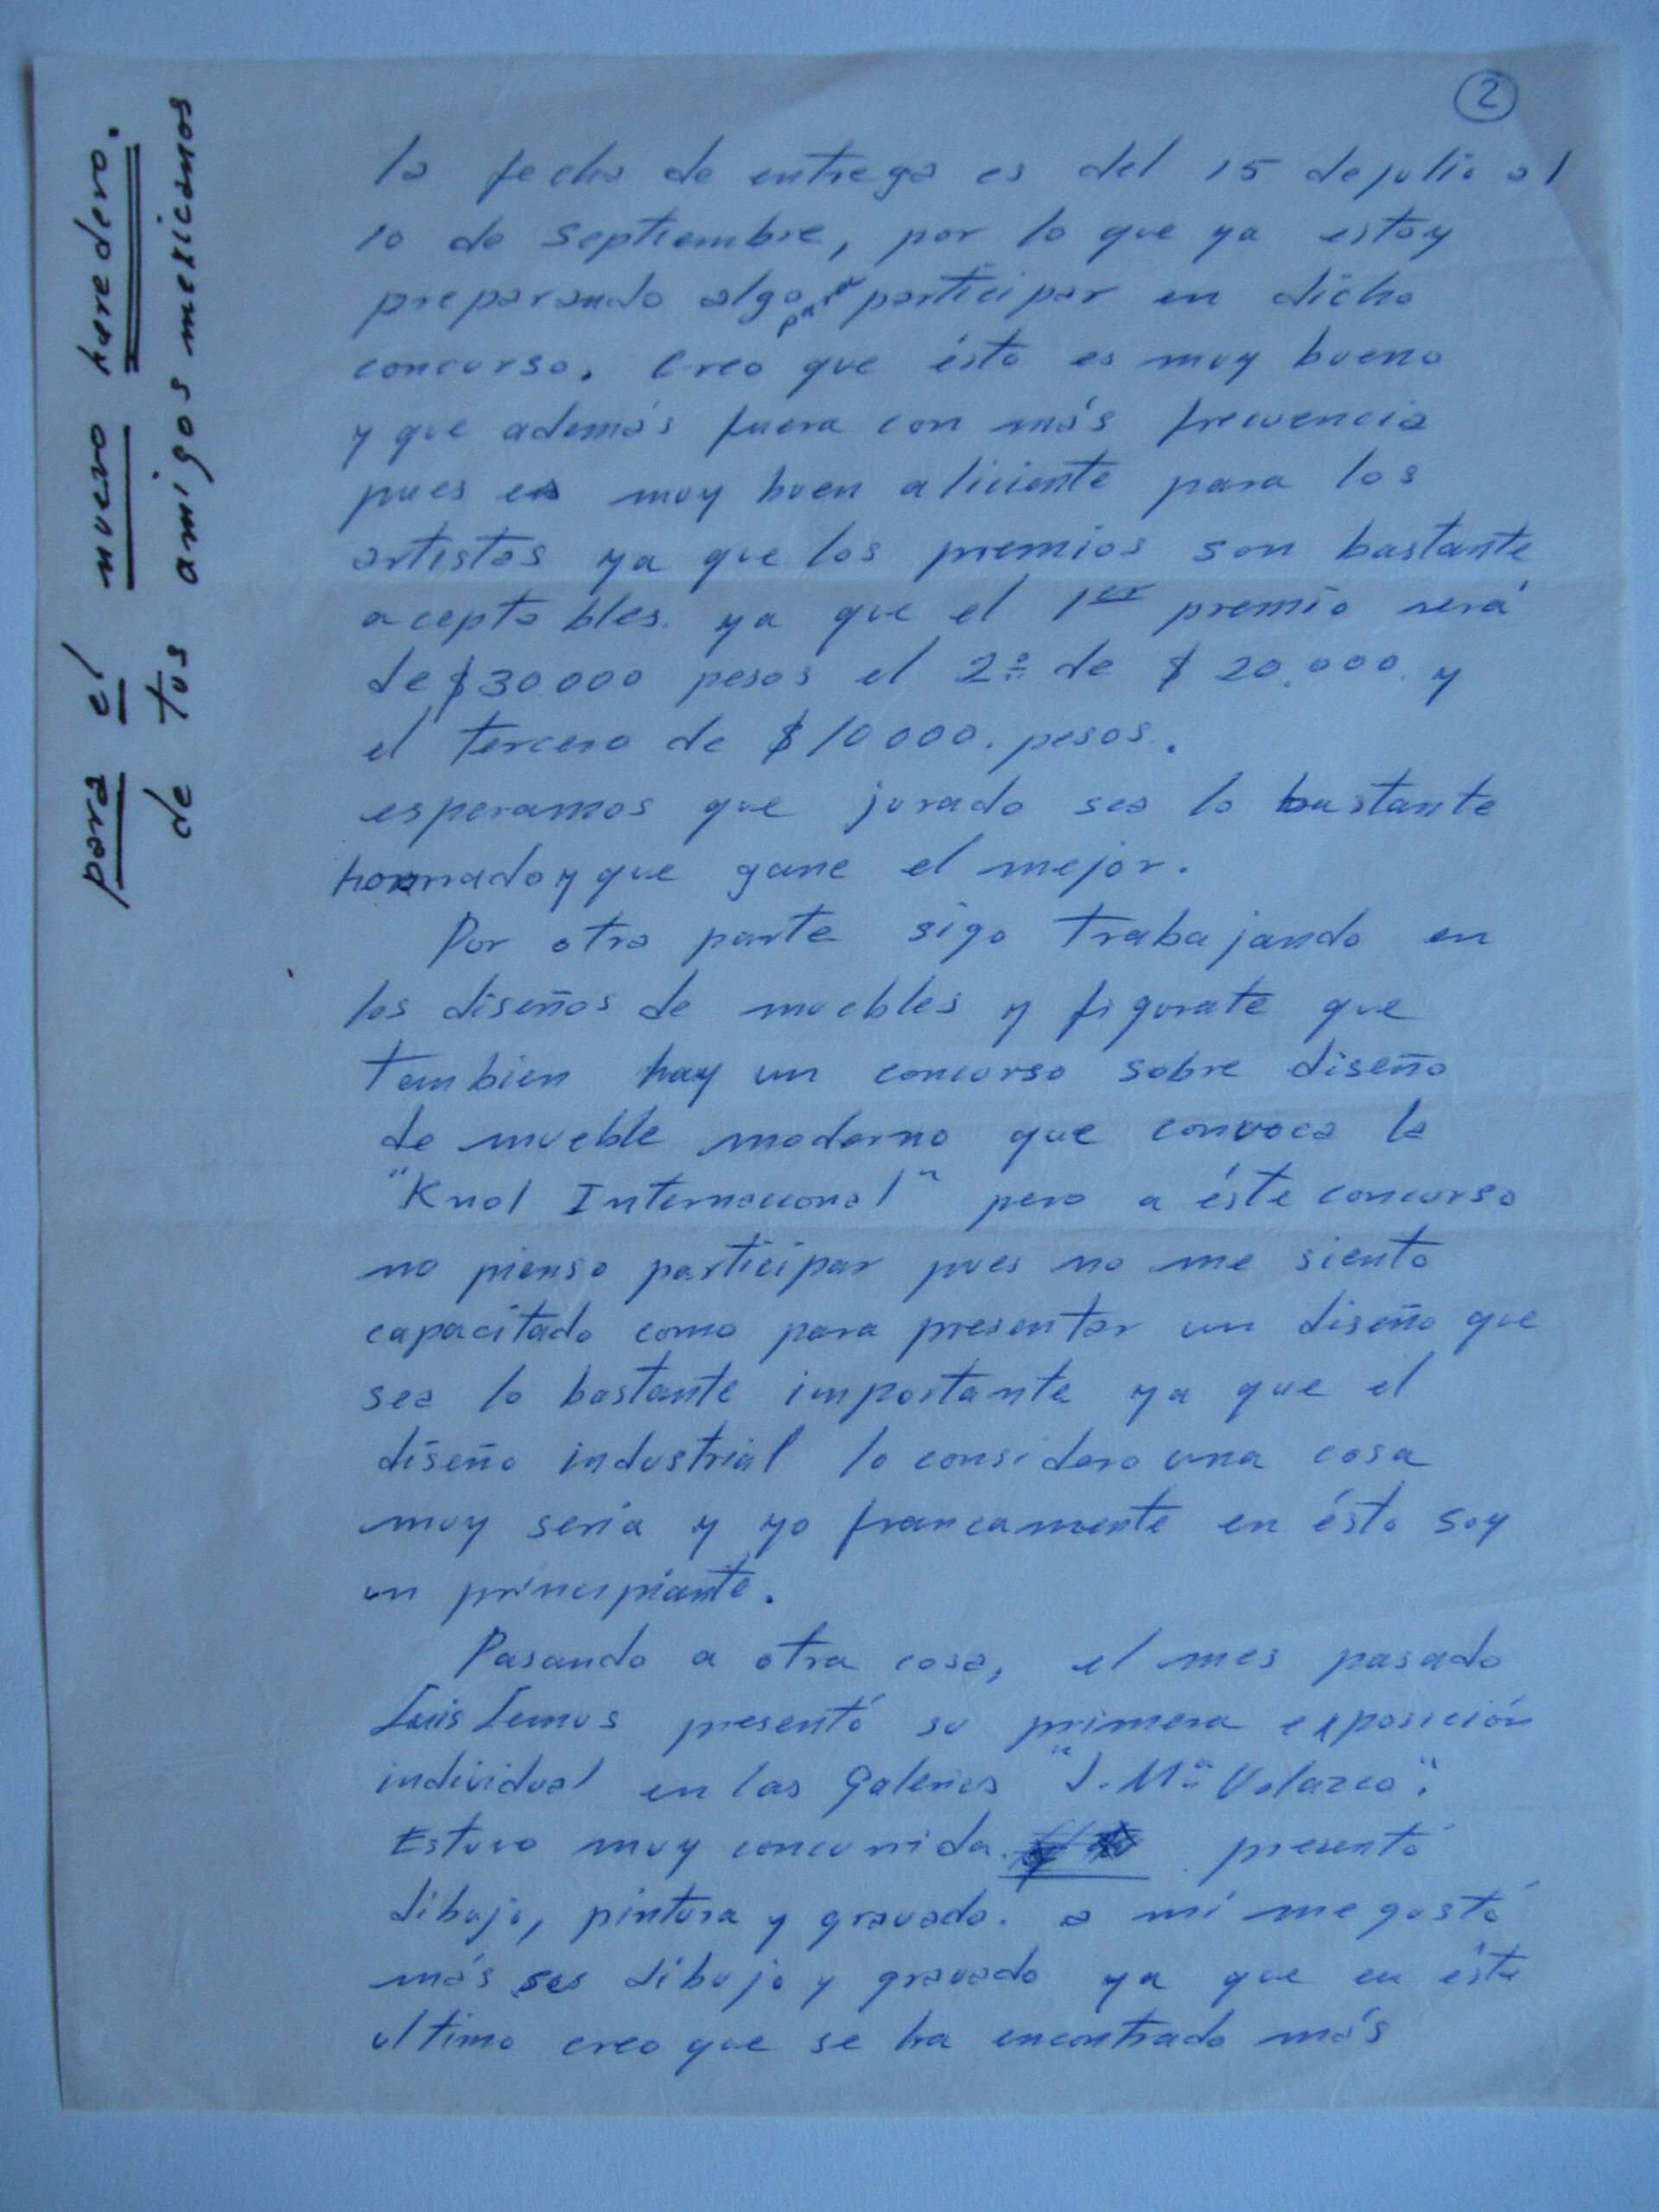 2
la fecha de entrega es del 15 de julio al
10 de septiembre, por lo que ya estoy
preparando algo para participar en dicho
concurso. Creo que ésto es muy bueno
y que además fuera con más frecuencia
pues es muy buen aliciente para los
artistas ya que los premios son bastante
aceptables. ya que el 1er premio será
de $30.000 pesos el 2º de $20.000. y
el tercero de $10000. pesos.
esperamos que jurado sea lo bastante
honrrado y que gane el mejor.
Por otra parte sigo trabajando en
los diseños de muebles y figurate que
tambien hay un concurso sobre diseño
de mueble moderno que convoca la
"Knol Internacional" pero a éste concurso
no pienso participar pues no me siento
capacitado como para presentar un diseño que
sea lo bastante importante ya que el
diseño industrial lo considero una cosa
muy seria y yo francamente en ésto soy
un principiante.
Pasando a otra cosa, el mes pasado
Luis Lemus presentó su primera exposición
individual en las Galerias "J. Mª Velazco".
Estuvo muy concurrida. presentó
dibujo, pintura y gravado. a mí me gustó
más sus dibujo y gravado ya que en éste
ultimo creo que se ha encontrado más
para el nuevo heredero.
de tus amigos mexicanos